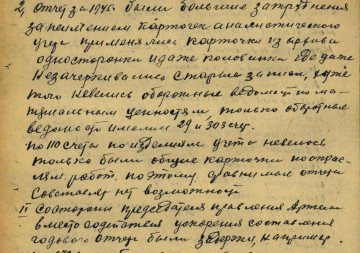 2, Отчет за 194 были большие затруднения
за неимением карточек аналитического
учета применялись карточки из архива
односторонки и даже половинки где даже
незачеркивались старые записи, хуже
того невелись оборотные ведомости по ма-
териальным ценностям, только оборотные
ведомости имелись 29 и 30 счет.
по 110 счету по изделиям учета невелось
только были общие карточки по отрас-
лям работ. поэтому сравнимые отчеты
составлять нет возможности
II Со стороны председателя правления Артели
вместо содействия ускорения составления
годового отчета были задержки, например